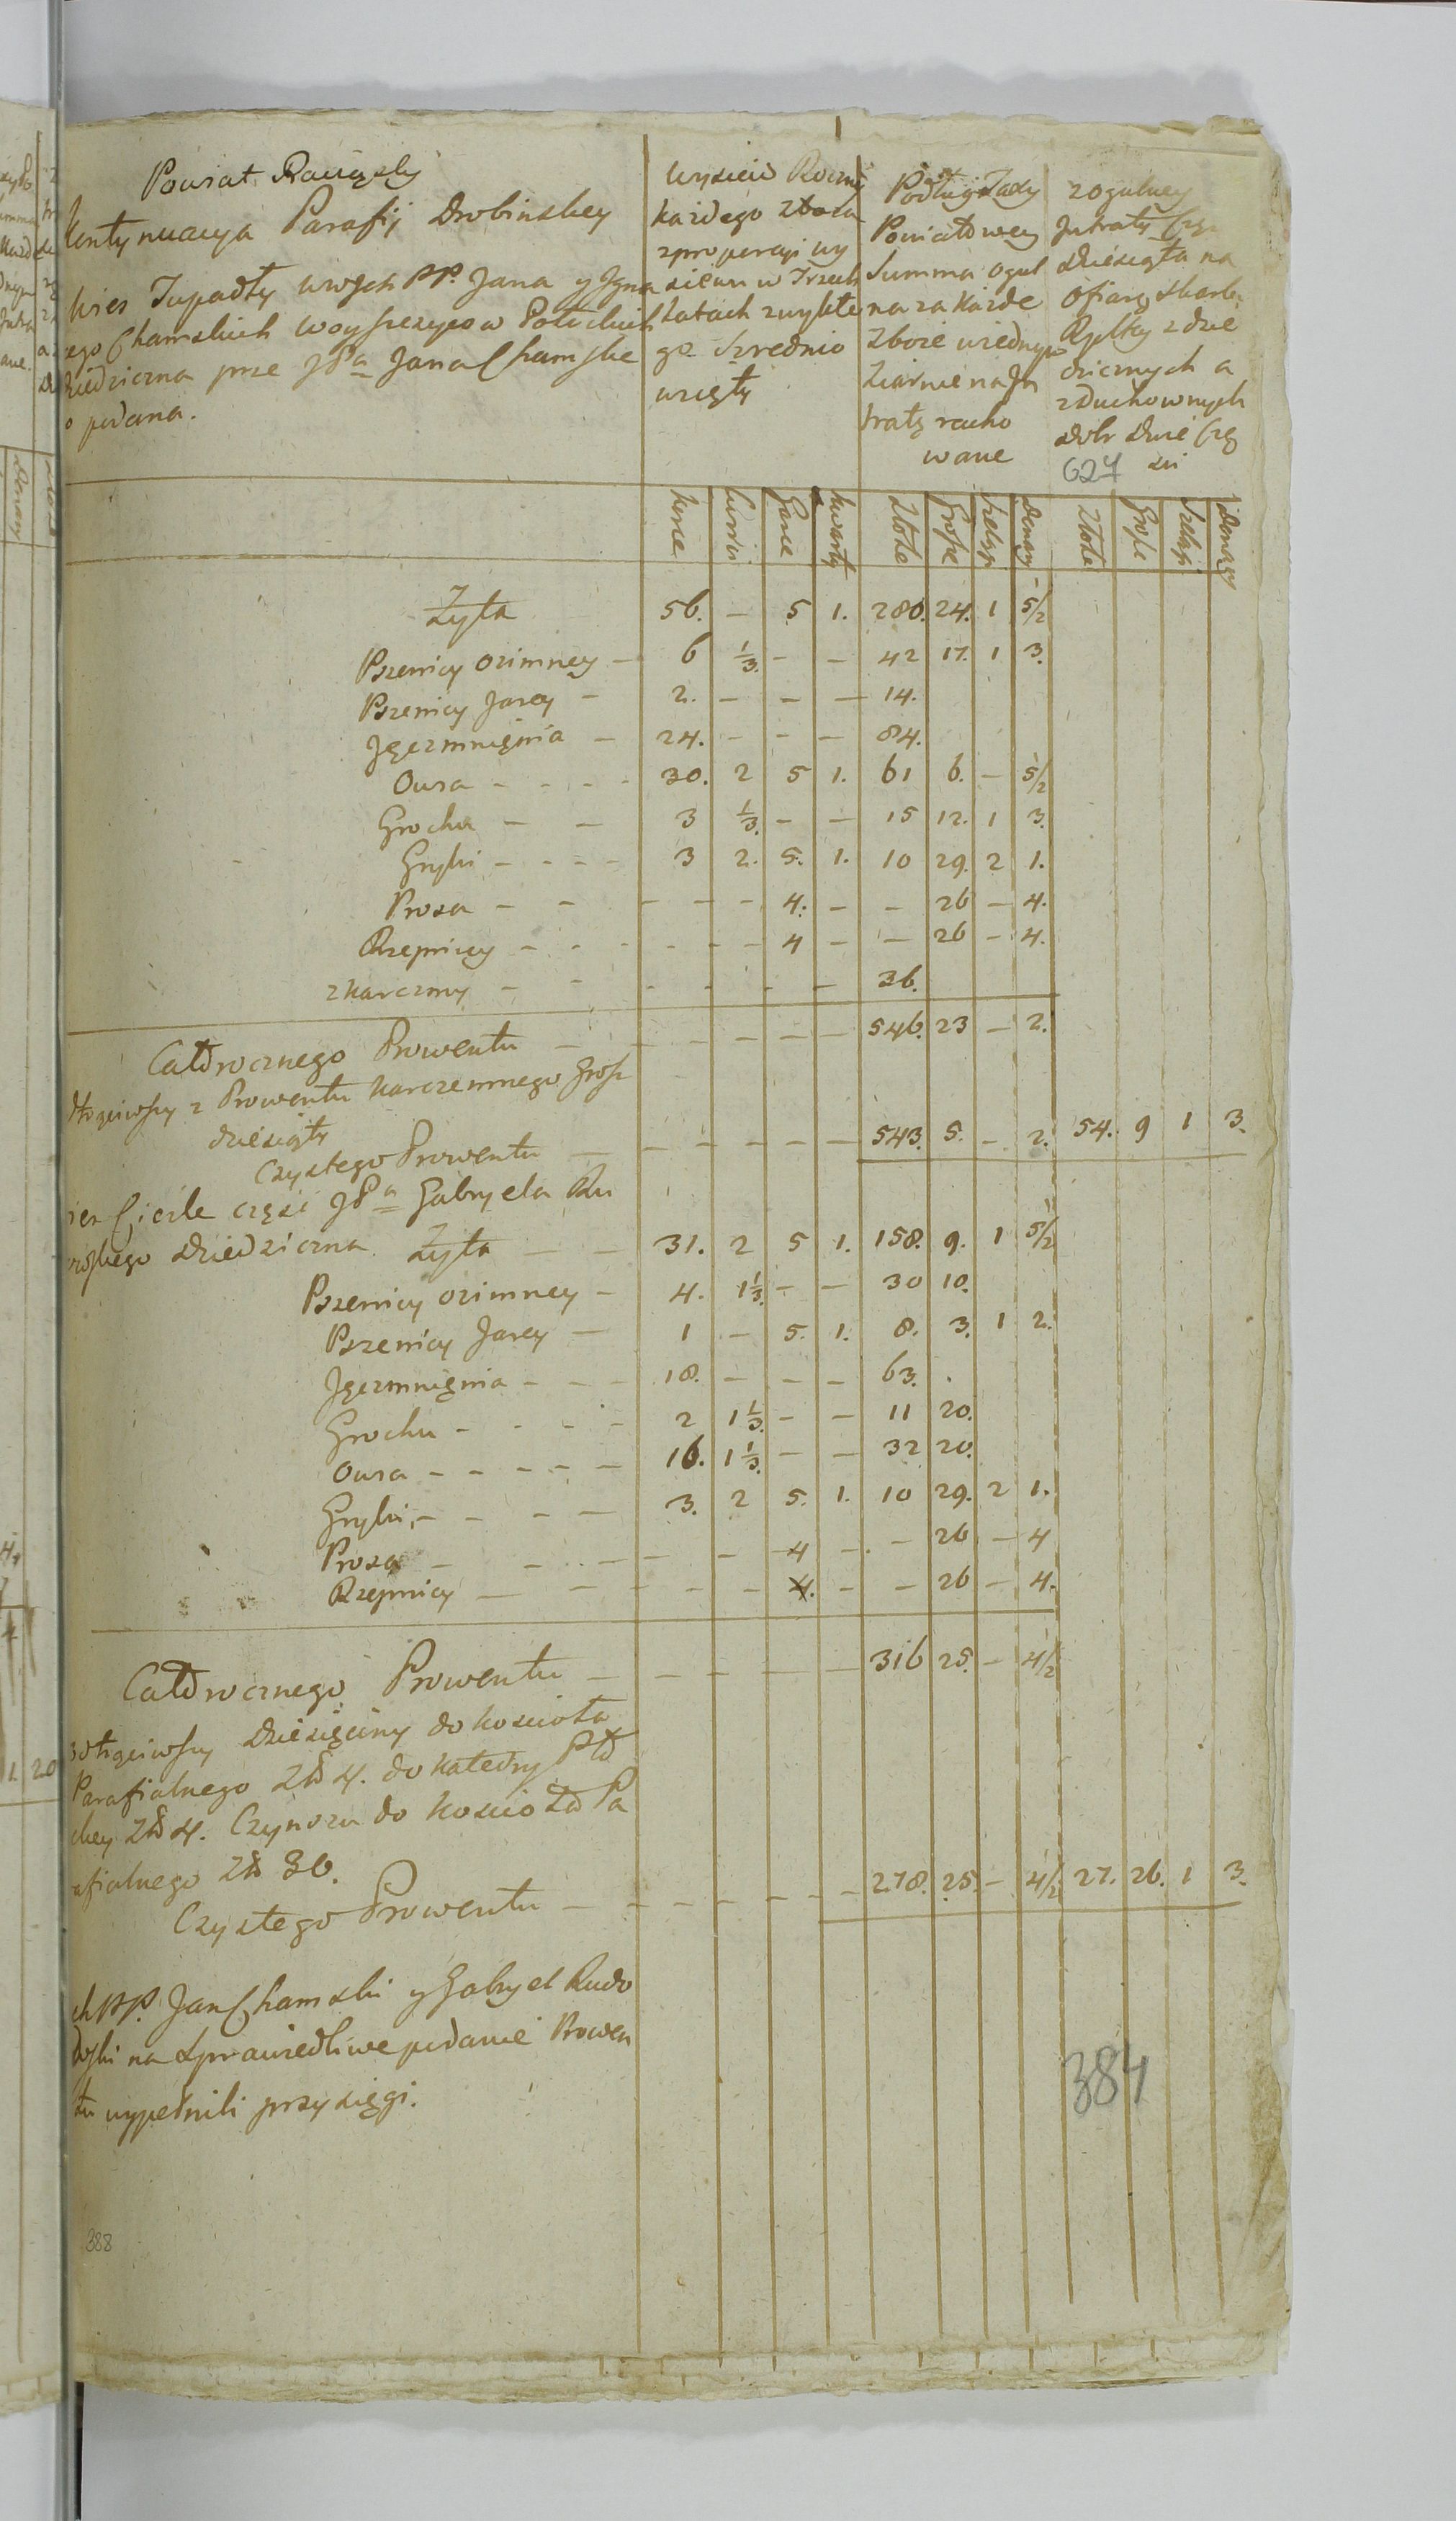 Powiat Raciązky
Kontynuacya Parafij Drobinskey
Wies Tupadły urojch PP. Jana y Igna
cego Chamskich Woyszczycow Połockich
dziedziczna prze JPa Jana Chamskie
o podana.
Wysiew Roczny
każdego zboża
z proporcyi wy
siewu w Trzech
Latach zwykłe
go Szrednio
wzięty
Podług Taxy
Powiatowey
Summa ogul
na za każde
zboże w iednym
Ziarnie na In
tratę racho
wane
z ogulney
Intraty Czę
dziesiąta na
Ofiarę skarb:
Rpltey z dzie
dzicznych a
z Duchownych
Dobr dwie Czę
sci
627
Korce Ćwierci Garce Kwarty Złote Grosze Szelągi Denary Złote Grosze Szelągi Denary
Żyta 56. — 5 1. 280. 24. 1 5/2
Pszenicy ozimney — 6 1/3. — — 42 17. 1 3.
Pszenicy Jarey — 2. — — — 14.
Jęczmnięnia — 24. — — — 84.
Owsa — 30. 2 5 1. 61 6. — 5/2
Grochu — 3 1/3. — — 15 12. 1 3.
Gryki — 3 2. 5. 1. 10 29. 2 1.
Prosa — — — 4. — — 26 — 4.
Rzepnicy — — — 4 — — 26 — 4.
z karczmy — — — — — 36.
Całorocznego Prowentu — — — — — 546. 23 — 2.
Potrąciwszy z Prowentu karczemnego Grosz
dziesiąty
Czystego Prowentu — — — — — 543. 5. — 2. 54. 9 1 3.
ies Cieśle częsć JPa Gabryela Ru
wskiego Dziedziczna. Żyta — 31. 2 5 1. 158. 9. 1 5/2
Pszenicy ozimney — 4. 1 1/3. — — 30 10.
Pszenicy Jarey — 1 — 5. 1. 8. 3. 1 2.
Jęczmnięnia — 18. — — — 63.
Grochu — 2 1 1/3. — — 11 20.
Owsa — 16. 1 1/3. — — 32 20.
Gryki — 3. 2 5. 1. 10 29. 2 1.
Prosa — — — 4 — — 26 — 4
Rzepnicy — — — 4. — — 26 — 4.
Całorocznego Prowentu — — — — — 316 25. — 4/2
Potrąciwszy Dziesięciny do koscioła
Parafialnego Zł 4. do Katedry Pło
ckey Zł 4. Czynszu do koscioła Pa
rafialnego Zł 30.
Czystego Prowentu — — — — — 278. 25. — 4/2 27. 26. 1 3.
ch PP. Jan Chamski y Gabryel Rudo
wski na sprawiedliwe podanie Prowen
tu wypełnili przysięgi.
384
388